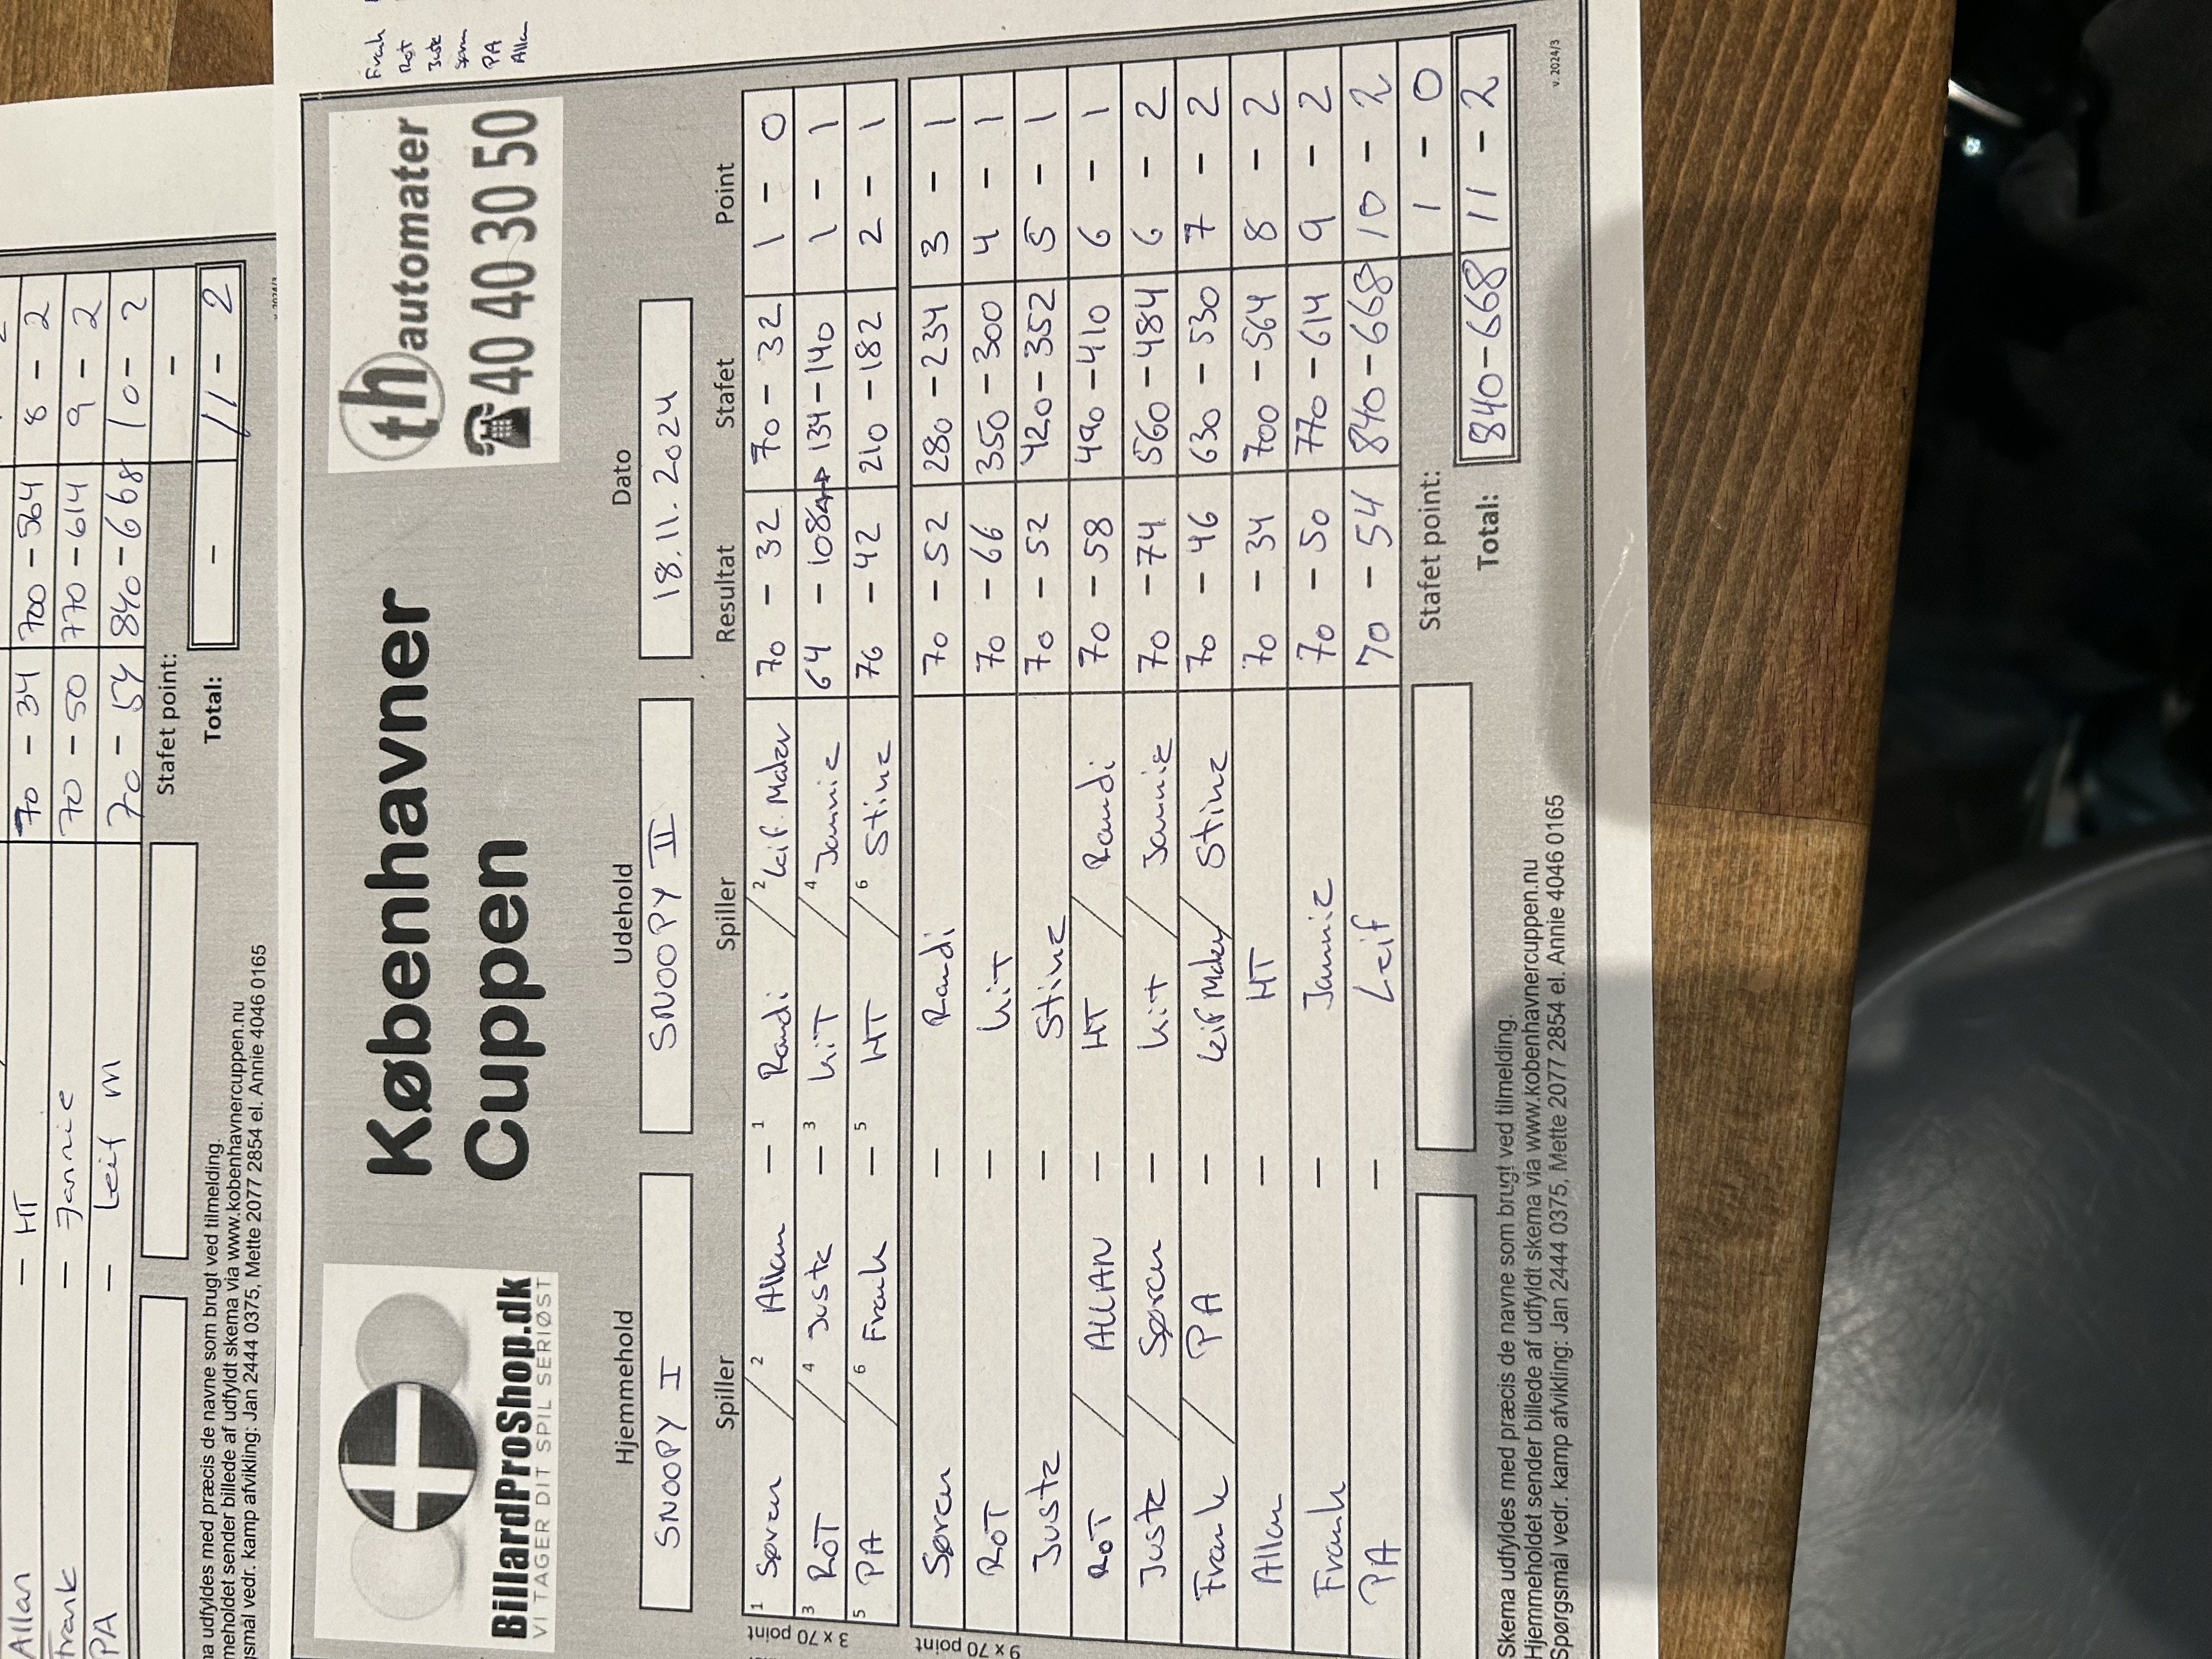 Allan - HT 70 - 34 700 - 564 8 - 2
Frank - Jannie 70 - 50 770 - 614 9 - 2
PA - Leif M 70 - 54 840 - 668 10 - 2
Stafet point: -
Total: - 11 - 2
ma udfyldes med præcis de navne som brugt ved tilmelding.
meholdet sender billede af udfyldt skema via www.kobenhavnercuppen.nu
gsmål vedr. kamp afvikling: Jan 2444 0375, Mette 2077 2854 el. Annie 4046 0165
Frank
RoT
Juste
Søren
PA
Allan
BillardProShop.dk
VI TAGER DIT SPIL SERIØST
Københavner
Cuppen
th automater
40 40 30 50
Hjemmehold Udehold Dato
SNOOPY I SNOOPY II 18.11.2024
Spiller Spiller Resultat Stafet Point
3 x 70 point
1 Søren / 2 Allan - 1 Randi / 2 Leif Maler 70 - 32 70 - 32 1 - 0
3 RoT / 4 Juste - 3 KiT / 4 Jannie 64 - 108 134 - 140 1 - 1
5 PA / 6 Frank - 5 HT / 6 Stine 76 - 42 210 - 182 2 - 1
9 x 70 point
Søren - Randi 70 - 52 280 - 234 3 - 1
RoT - KiT 70 - 66 350 - 300 4 - 1
Juste - Stine 70 - 52 420 - 352 5 - 1
RoT / ALLAN - HT / Randi 70 - 58 490 - 410 6 - 1
Juste / Søren - Kit / Jannie 70 - 74 560 - 484 6 - 2
Frank / PA - Leif Maler / Stine 70 - 46 630 - 530 7 - 2
Allan - HT 70 - 34 700 - 564 8 - 2
Frank - Jannie 70 - 50 770 - 614 9 - 2
PA - Leif 70 - 54 840 - 668 10 - 2
Stafet point: 1 - 0
Total: 840 - 668 11 - 2
Skema udfyldes med præcis de navne som brugt ved tilmelding.
Hjemmeholdet sender billede af udfyldt skema via www.kobenhavnercuppen.nu
Spørgsmål vedr. kamp afvikling: Jan 2444 0375, Mette 2077 2854 el. Annie 4046 0165
v. 2024/3